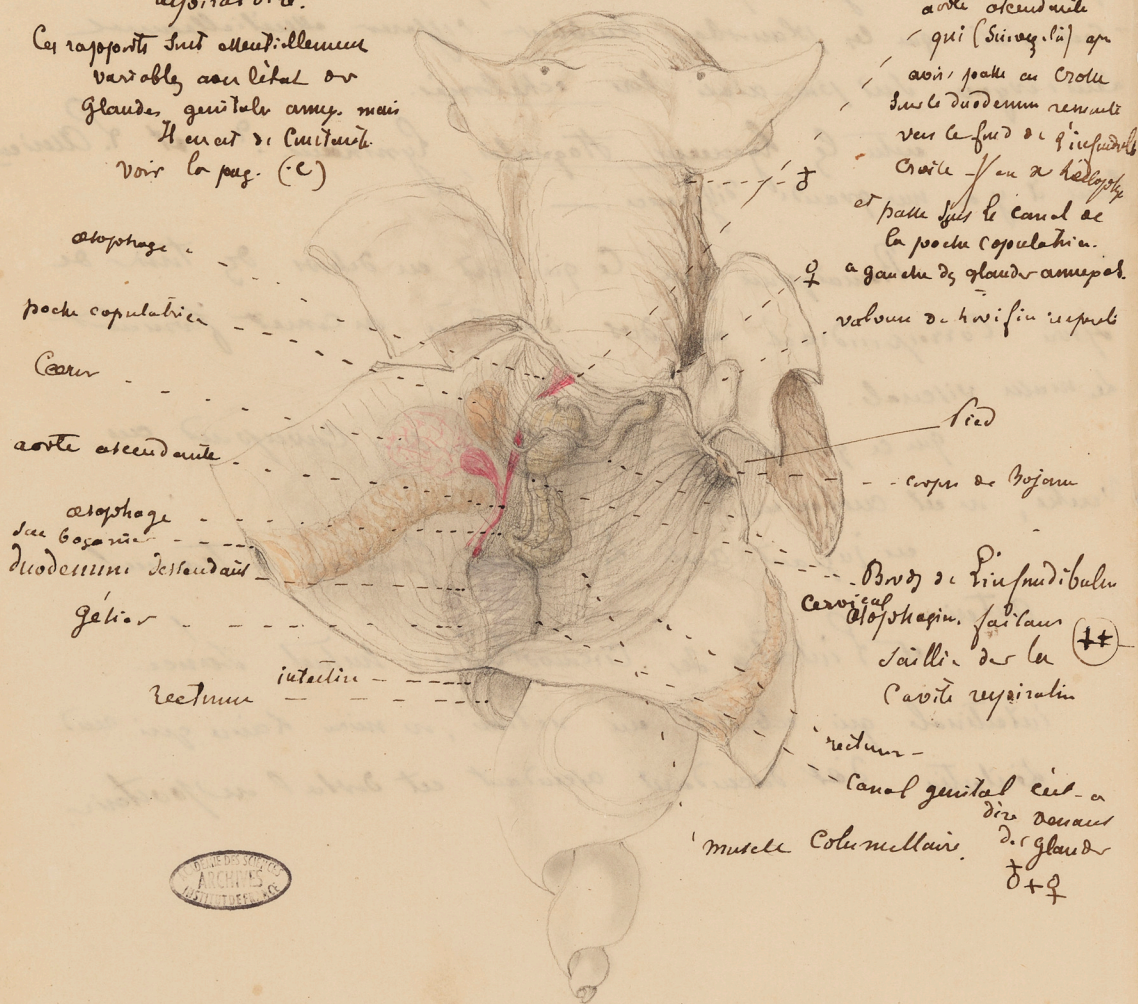 Ces rapports sont essentiellement
variables avec l'état des
Glandes genitales annex. mais
voir la pag. (·C)
œsophage
poche copulatrice
Cœur
aorte ascendante
œsophage
duodenum descendant
Gésier
intestin
rectum
aorte ascendante
qui (suivez là) ap
avoir passé en croix
sur le duodenum remonte
vers le fond de l'infundib
croise
et passe sous le canal de
la poche copulatrice.
a gauche des glandes annexes.
♁
♀
valvule de l'orifice respirat
Pied
corps de Bojanu
Bords de l'infundibulum
cervical
œsophagien. faisant
saillie dans la ++
Cavité respiratoire
rectum
Canal genital c'est-a
dire venant
des glandes
♁+♀
muscle Columellaire.
ACADÉMIE DES SCIENCES
ARCHIVES
INSTITUT DE FRANCE